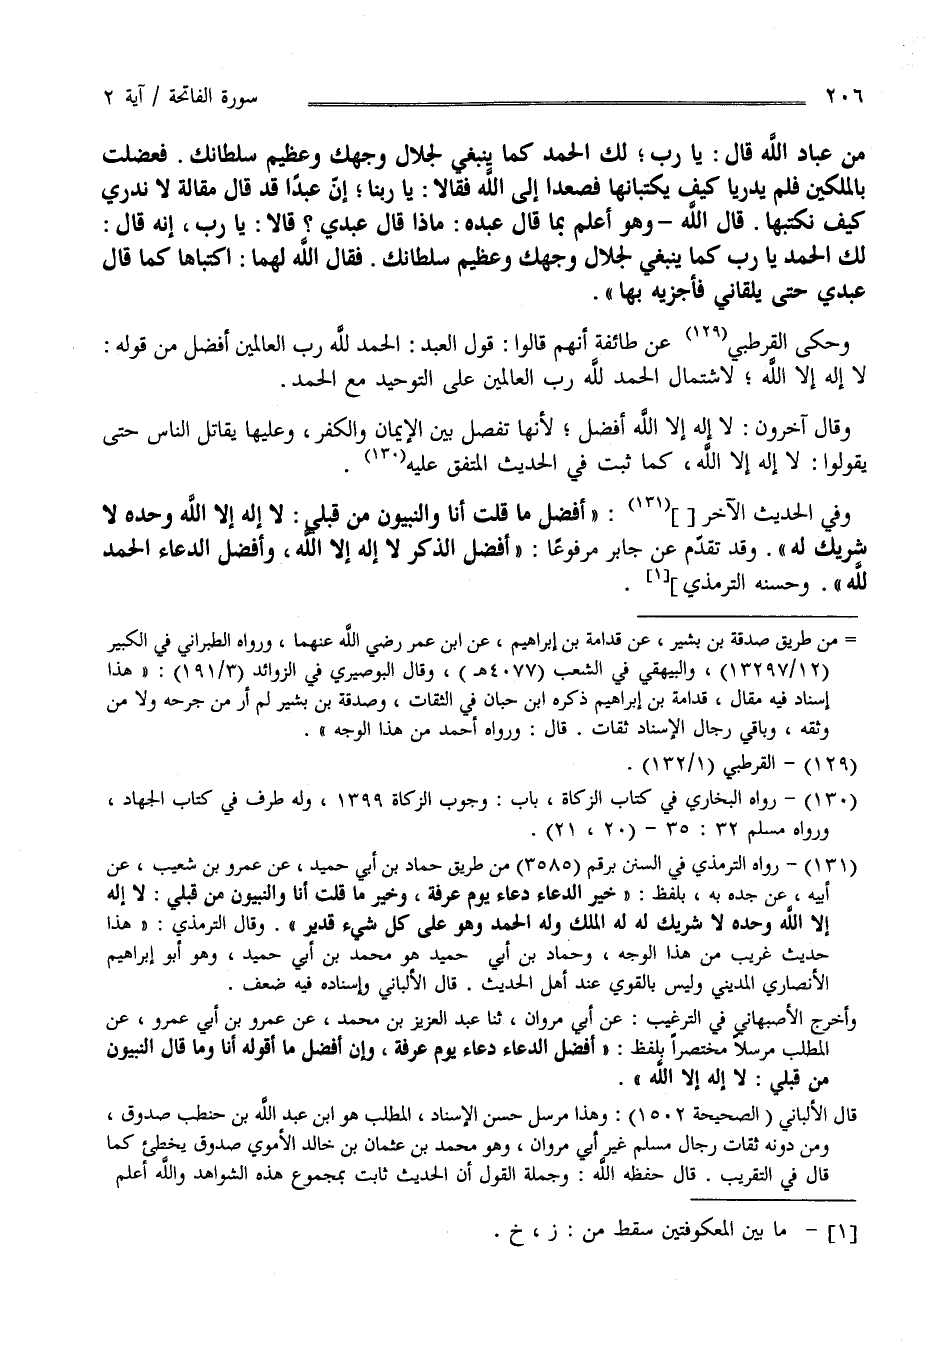 ٢٠٦ سورة الفاتحة / آية ٢
من عباد الله قال : يا رب ؛ لك الحمد كما ينبغي لجلال وجهك وعظيم سلطانك . فعضلت
بالملكين فلم يدريا كيف يكتبانها فصعدا إلى الله فقالا : يا ربنا ؛ إنّ عبدًا قد قال مقالة لا ندري
كيف نكتبها . قال الله – وهو أعلم بما قال عبده : ماذا قال عبدي ؟ قالا : يا رب ، إنه قال :
لك الحمد يا رب كما ينبغي لجلال وجهك وعظيم سلطانك . فقال الله لهما : اكتباها كما قال
عبدي حتى يلقاني فأجزيه بها » .
وحكى القرطبي(١٢٩) عن طائفة أنهم قالوا : قول العبد : الحمد لله رب العالمين أفضل من قوله :
لا إله إلا الله ؛ لاشتمال الحمد لله رب العالمين على التوحيد مع الحمد .
وقال آخرون : لا إله إلا الله أفضل ؛ لأنها تفصل بين الإيمان والكفر ، وعليها يقاتل الناس حتى
يقولوا : لا إله إلا الله ، كما ثبت في الحديث المتفق عليه(١٣٠) .
وفي الحديث الآخر [ ](١٣١) : « أفضل ما قلت أنا والنبيون من قبلي : لا إله إلا الله وحده لا
شريك له » . وقد تقدّم عن جابر مرفوعًا : « أفضل الذكر لا إله إلا الله ، وأفضل الدعاء الحمد
لله » . وحسنه الترمذي ][١] .
= من طريق صدقة بن بشير ، عن قدامة بن إبراهيم ، عن ابن عمر رضي الله عنهما ، ورواه الطبراني في الكبير
(١٣٢٩٧/١٢) ، والبيهقي في الشعب (٤٠٧٧هـ) ، وقال البوصيري في الزوائد (١٩١/٣) : « هذا
إسناد فيه مقال ، قدامة بن إبراهيم ذكره ابن حبان في الثقات ، وصدقة بن بشير لم أر من جرحه ولا من
وثقه ، وباقي رجال الإسناد ثقات . قال : ورواه أحمد من هذا الوجه » .
(١٢٩) – القرطبي (١٣٢/١) .
(١٣٠) – رواه البخاري في كتاب الزكاة ، باب : وجوب الزكاة ١٣٩٩ ، وله طرف في كتاب الجهاد ،
ورواه مسلم ٣٢ : ٣٥ – (٢٠ ، ٢١) .
(١٣١) – رواه الترمذي في السنن برقم (٣٥٨٥) من طريق حماد بن أبي حميد ، عن عمرو بن شعيب ، عن
أبيه ، عن جده به ، بلفظ : « خير الدعاء دعاء يوم عرفة ، وخير ما قلت أنا والنبيون من قبلي : لا إله
إلا الله وحده لا شريك له له الملك وله الحمد وهو على كل شيء قدير » . وقال الترمذي : « هذا
حديث غريب من هذا الوجه ، وحماد بن أبي حميد هو محمد بن أبي حميد ، وهو أبو إبراهيم
الأنصاري المديني وليس بالقوي عند أهل الحديث . قال الألباني وإسناده فيه ضعف .
وأخرج الأصبهاني في الترغيب : عن أبي مروان ، ثنا عبد العزيز بن محمد ، عن عمرو بن أبي عمرو ، عن
المطلب مرسلاً مختصراً بلفظ : « أفضل الدعاء دعاء يوم عرفة ، وإن أفضل ما أقوله أنا وما قال النبيون
من قبلي : لا إله إلا الله » .
قال الألباني ( الصحيحة ١٥٠٢) : وهذا مرسل حسن الإسناد ، المطلب هو ابن عبد الله بن حنطب صدوق ،
ومن دونه ثقات رجال مسلم غير أبي مروان ، وهو محمد بن عثمان بن خالد الأموي صدوق يخطئ كما
قال في التقريب . قال حفظه الله : وجملة القول أن الحديث ثابت بمجموع هذه الشواهد والله أعلم
[١] – ما بين المعكوفتين سقط من : ز ، خ .